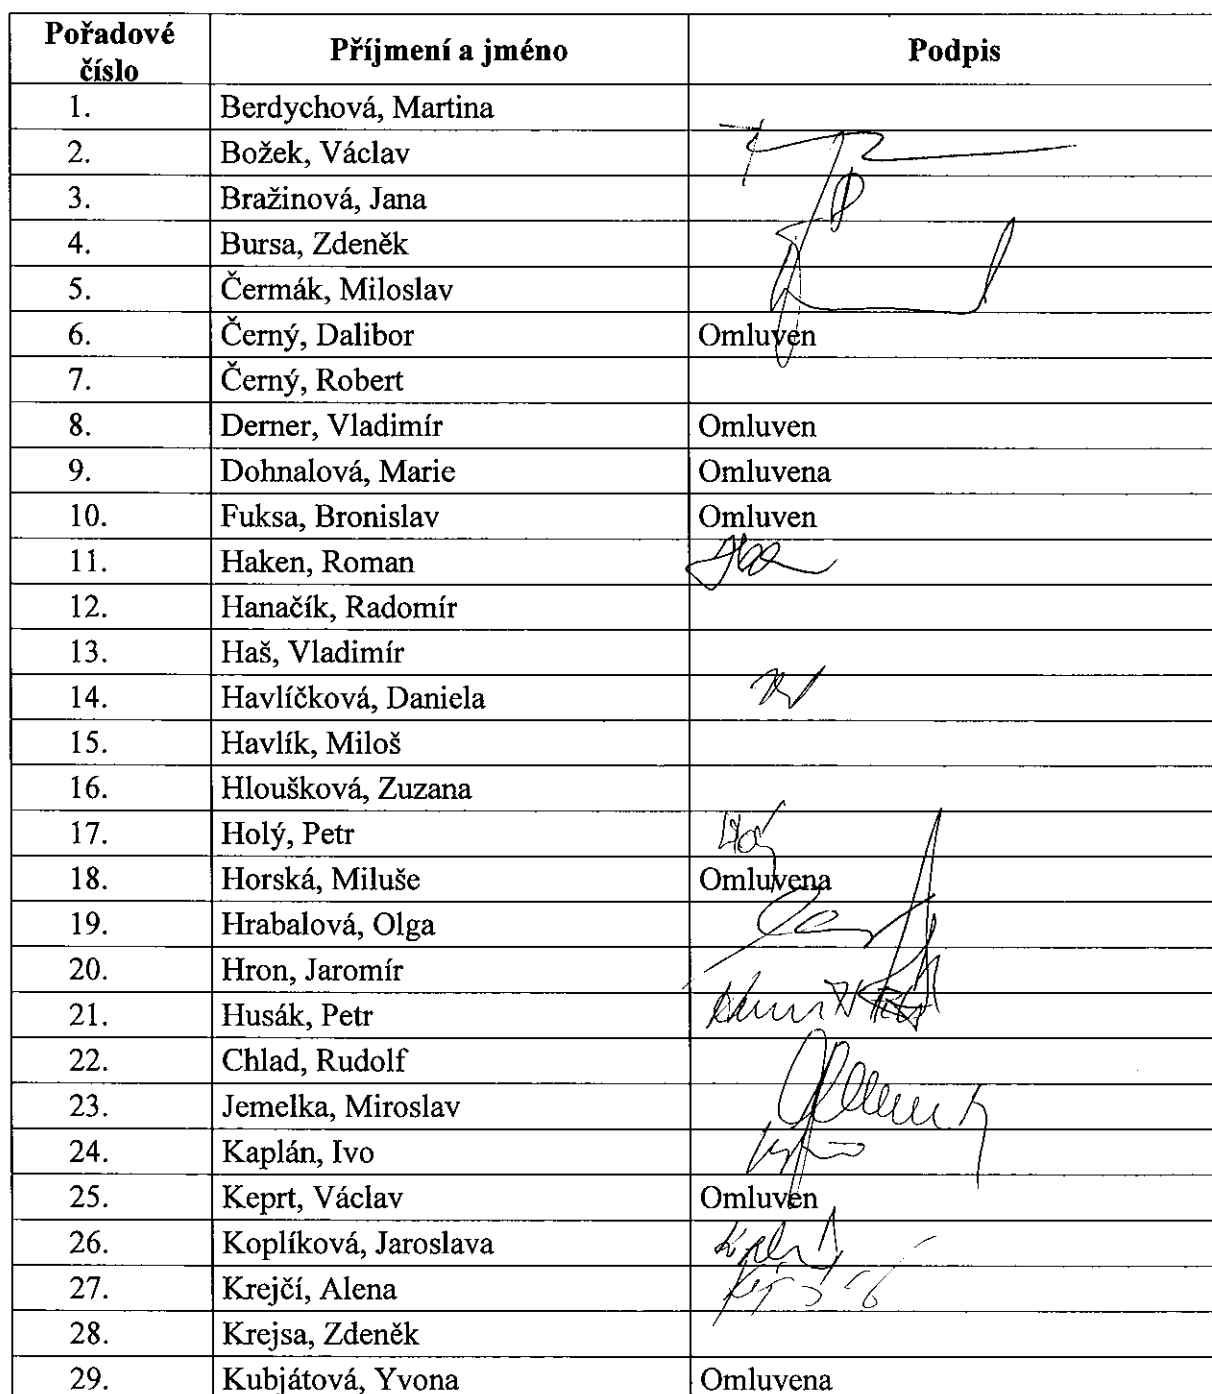 Pořadové číslo Příjmení a jméno Podpis
1. Berdychová, Martina
2. Božek, Václav
3. Bražinová, Jana
4. Bursa, Zdeněk
5. Čermák, Miloslav
6. Černý, Dalibor Omluven
7. Černý, Robert
8. Derner, Vladimír Omluven
9. Dohnalová, Marie Omluvena
10. Fuksa, Bronislav Omluven
11. Haken, Roman
12. Hanačík, Radomír
13. Haš, Vladimír
14. Havlíčková, Daniela
15. Havlík, Miloš
16. Hloušková, Zuzana
17. Holý, Petr
18. Horská, Miluše Omluvena
19. Hrabalová, Olga
20. Hron, Jaromír
21. Husák, Petr
22. Chlad, Rudolf
23. Jemelka, Miroslav
24. Kaplán, Ivo
25. Keprt, Václav Omluven
26. Koplíková, Jaroslava
27. Krejčí, Alena
28. Krejsa, Zdeněk
29. Kubjátová, Yvona Omluvena